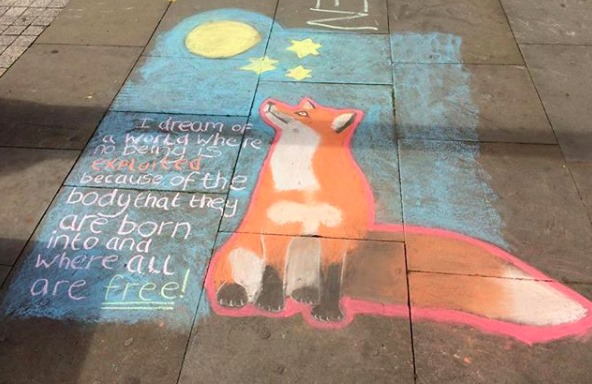 I dream of
a world where
no being is
exploited
because of the
body that they
are born
into and
where all
are free!